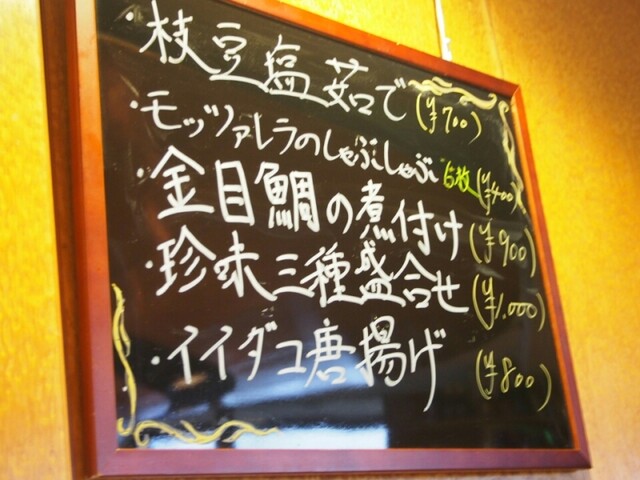 ・枝豆塩茹で (¥700)
・モッツァレラのしゃぶしゃぶ 5枚 (¥400)
・金目鯛の煮付け (¥900)
・珍味三種盛合せ (¥1.000)
・イイダコ唐揚げ (¥800)